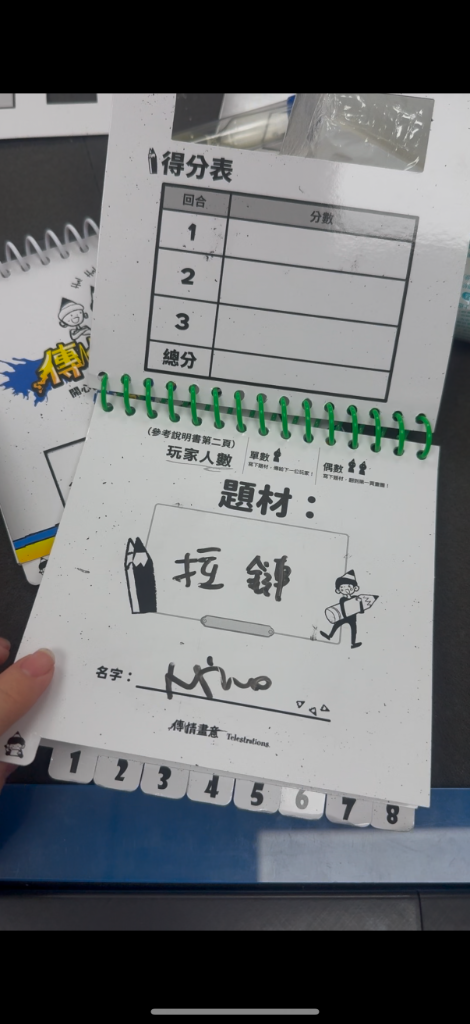 得分表
回合 分數
1
2
3
總分
傳
開心
(參考說明書第二頁)
玩家人數
單數
寫下題材，傳給下一位玩家！
偶數
寫下題材，翻到第一頁畫圖！
題材：
拉鏈
名字：Nino
傳情畫意 Telestrations
1 2 3 4 5 6 7 8